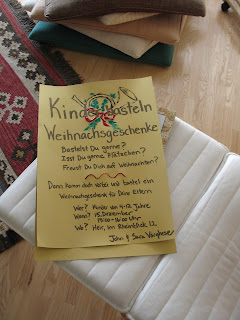 Kinderbasteln
Weihnachsgeschenke
Bastelst Du gerne?
Isst Du gerne Plätzchen?
Freust Du Dich auf Weihnachten?
Dann komm doch vorbei und bastel ein
Weihnachtsgeschenk für Deine Eltern
Wer? Kinder von 4-12 Jahre
Wann? 15. Dezember
15:00-16:00 Uhr
Wo? Hier, Im Rheinblick 12
John & Sara Varghese